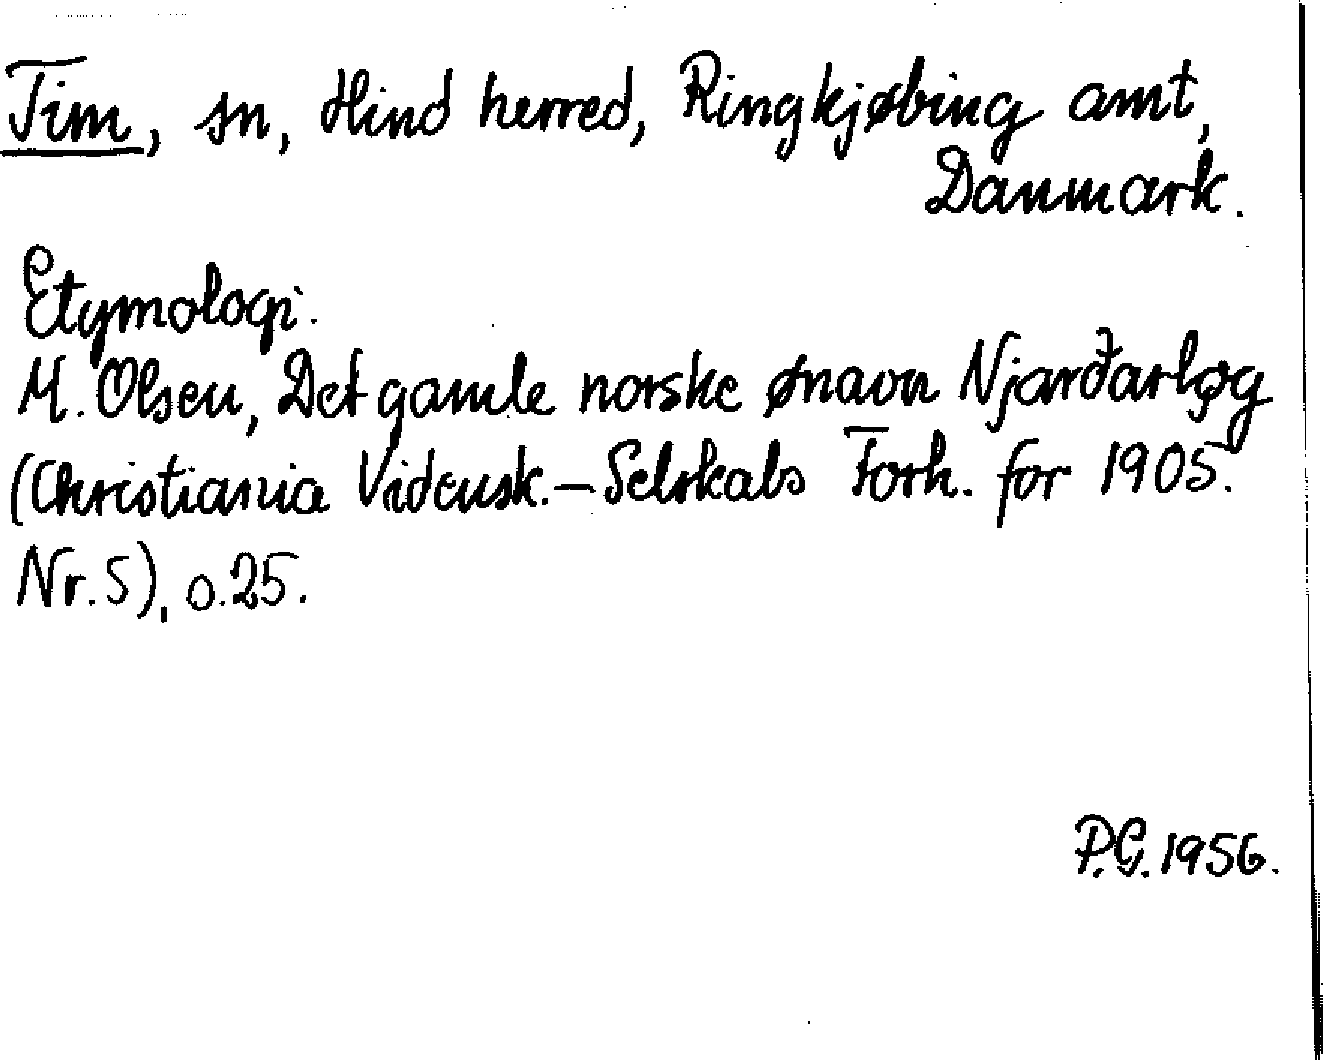 Tim, sn, Hind herred, Ringkjøbing amt,
Danmark.
Etymologi.
M. Olsen, Det gamle norske ønavn Njarðarlǫg
(Christiania Vidensk.-Selskabs Forh. for 1905.
Nr. 5), s. 25.
P.G. 1956.